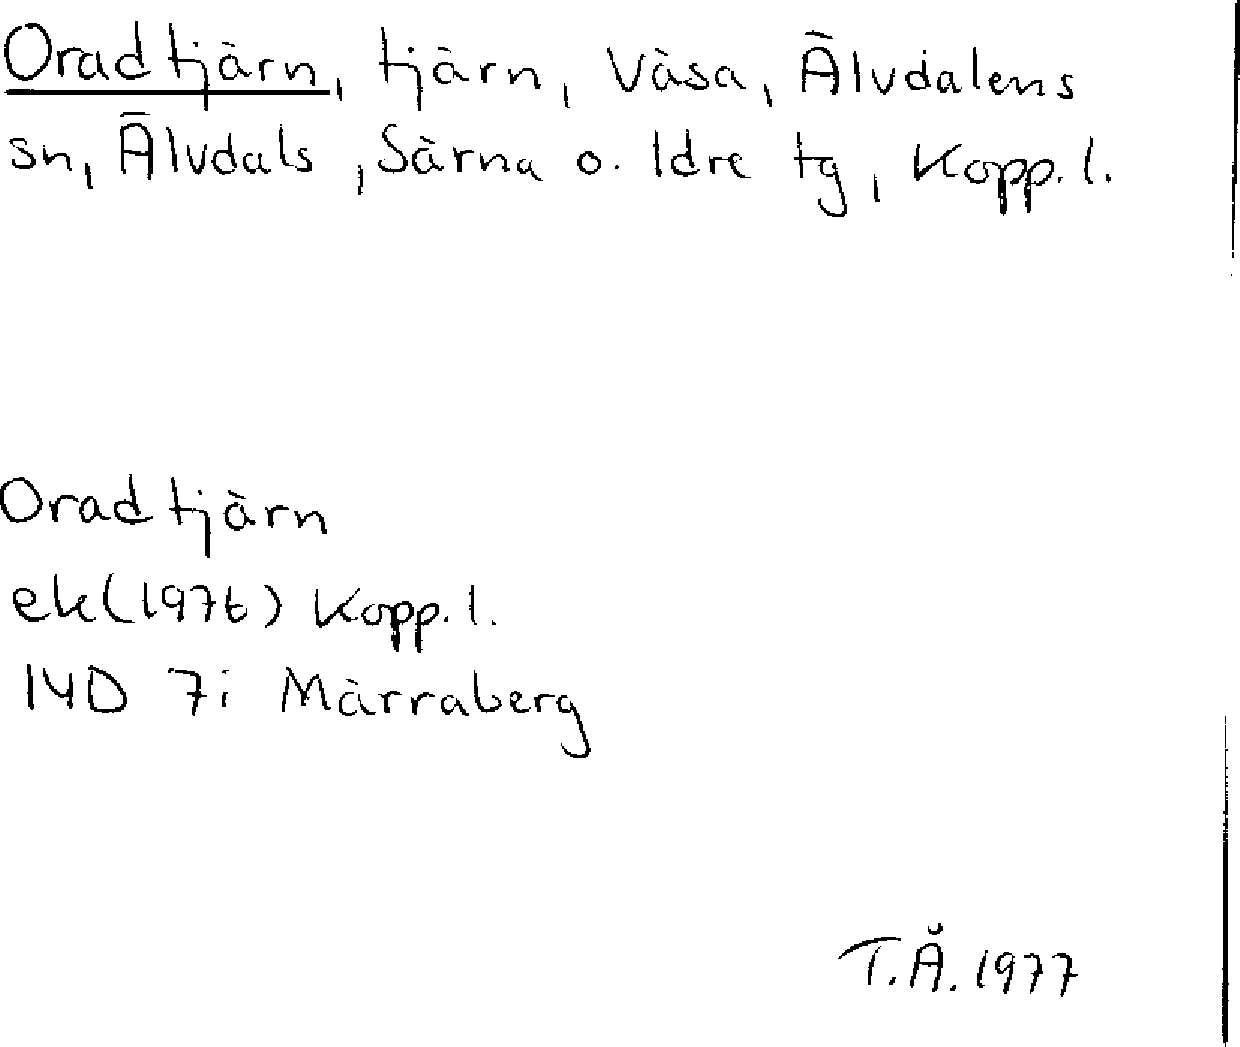 Oradtjärn, tjärn, Väsa, Älvdalens
sn, Älvdals, Särna o. Idre tg, Kopp. l.
Oradtjärn
ek (1976) Kopp. l.
14D 7i Märraberg
T.Å. 1977